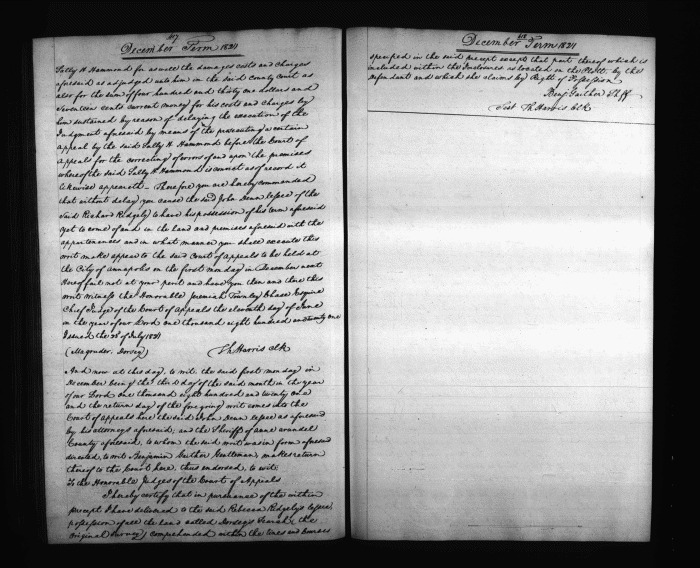 417
December Term 1821
Sally H Hammond for as well the damages costs and charges
aforesaid as adjudged unto him in the said county court as
also for the sum of four hundred and thirty one dollars and
Seventeen cents current money for his costs and charges by
him sustained by reason of delaying the execution of the
Judgment aforesaid by means of the prosecuting a certain
appeal by the said Sally H. Hammond before the Court of
appeals for the correcting of errors of and upon the premises
whereof the said Sally H. Hammond is convict as of record it
likewise appeareth - Therefore you are hereby commanded
that without delay you cause the said John Denn lessee of the
said Richard Ridgely to have his possession of his term aforesaid
yet to come of and in the land and premises aforesaid with the
appurtenances and in what manner you shall execute this
writ make appear to the said Court of appeals to be held at
the City of annapolis on the first monday in December next
Hereof fail not at your peril and have you then and there this
writ witness the Honorable Jeremiah Townley Chase Esquire
Chief Judge of the Court of Appeals the eleventh day of June
in the year of our Lord one thousand eight hundred and twenty one
Issued the day of July 1821
(Magruder. Dorsey) Th Harris clk
And now at this day, to wit, the said first monday in
December being the third day of the said month in the year
of our Lord one thousand eight hundred and twenty one
and the return day of the foregoing writ comes into the
Court of appeals here the said John Denn lessee as aforesaid
by his attorneys aforesaid, and the Sheriff of anne arundel
County aforesaid, to whom the said writ was in form aforesaid
directed, to wit Benjamin Gaither Gentleman, makes return
thereof to the Court here, thus endorsed, to wit;
To the Honorable Judges of the Court of Appeals
I hereby certify that in pursuance of the within
precept I have delivered to the said Rebecca Ridgely's lessee,
possession of all the land called Dorsey's Search, the
original survey, comprehended within the lines and courses
418
December Term 1821
specified in the said precept except that part thereof which is
included within the Inclosures as located on the Plott by the
Defendant and which she claims by Right of Possession
Benj. Gaither Shff
Test Th Harris Clk